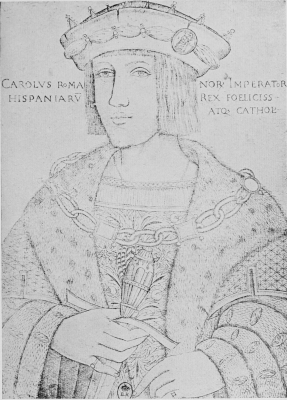 CAROLVS ROMA NOR· IMPERATOR
HISPANIARV̄ REX FOELICISS·
ATQ· CATHOL·